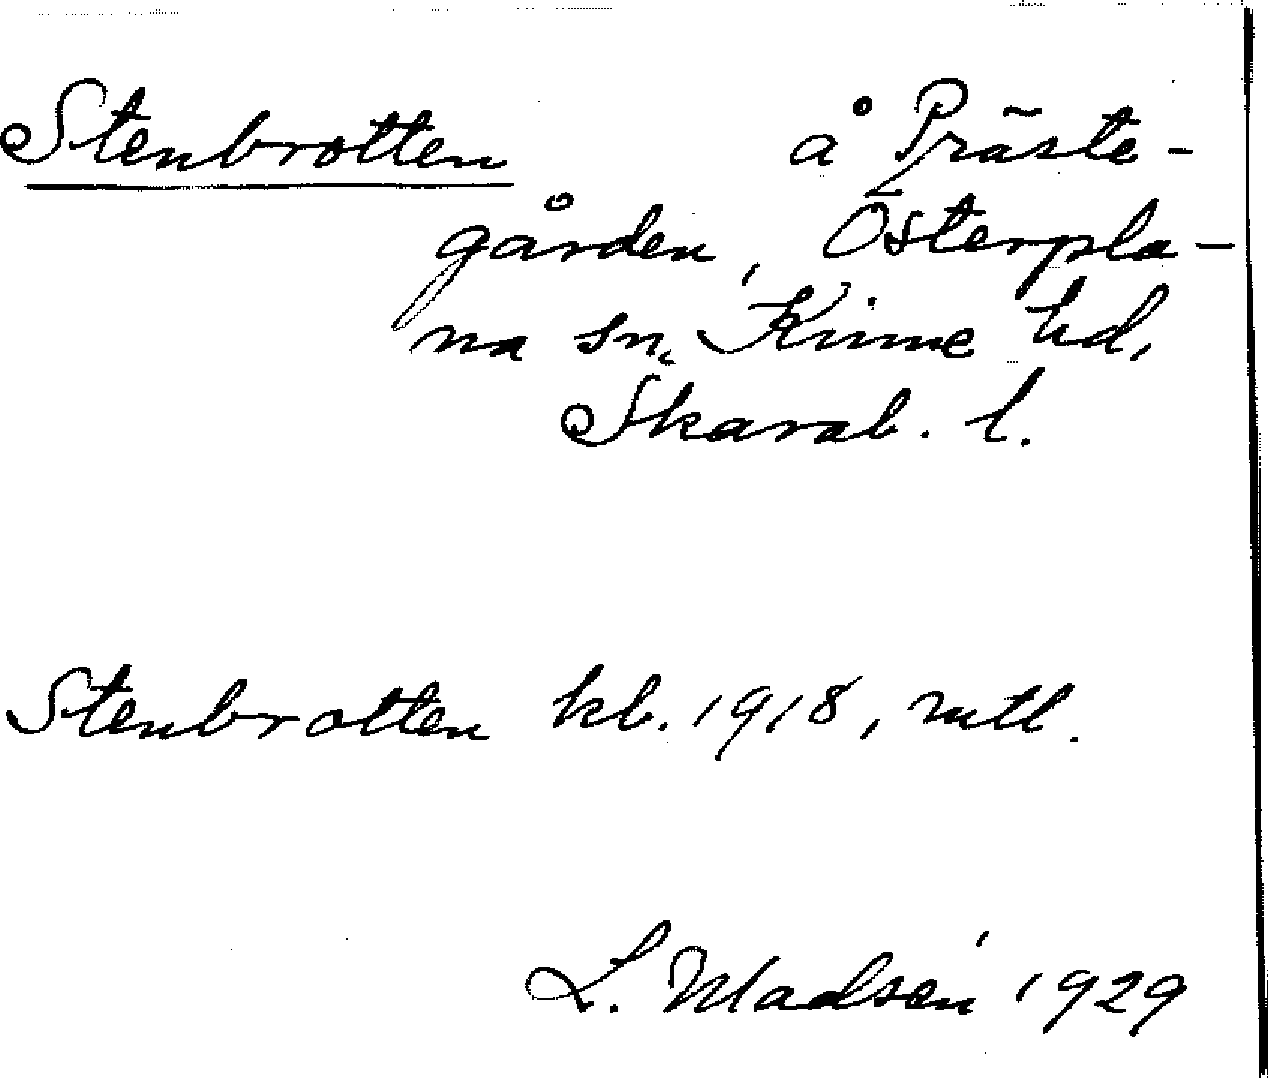 Stenbrotten å Präste-
gården, Österpla-
na sn. Kinne hd,
Skarab. l.
Stenbrotten kb. 1918, mtl.
L. Madsén 1929